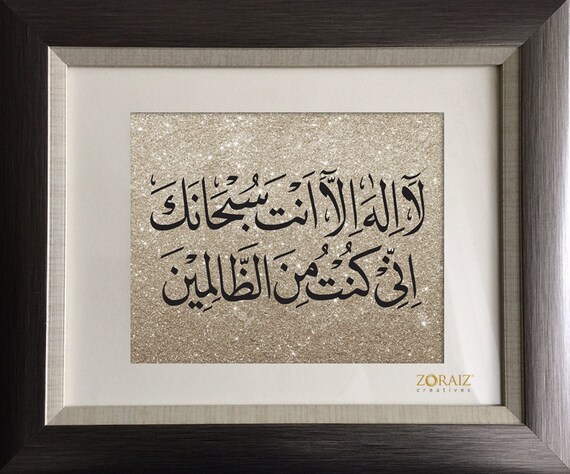 لَآ اِلٰهَ اِلَّآ اَنْتَ سُبْحَانَكَ
اِنِّيْ كُنْتُ مِنَ الظَّالِمِيْنَ
ZORAIZ®
creatives